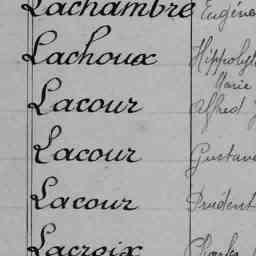 Lachambre Eugén
Lachoux Hippolyt
Marie
Lacour Alfred
Lacour Gustav
Lacour Prudent
Lacroix Charles